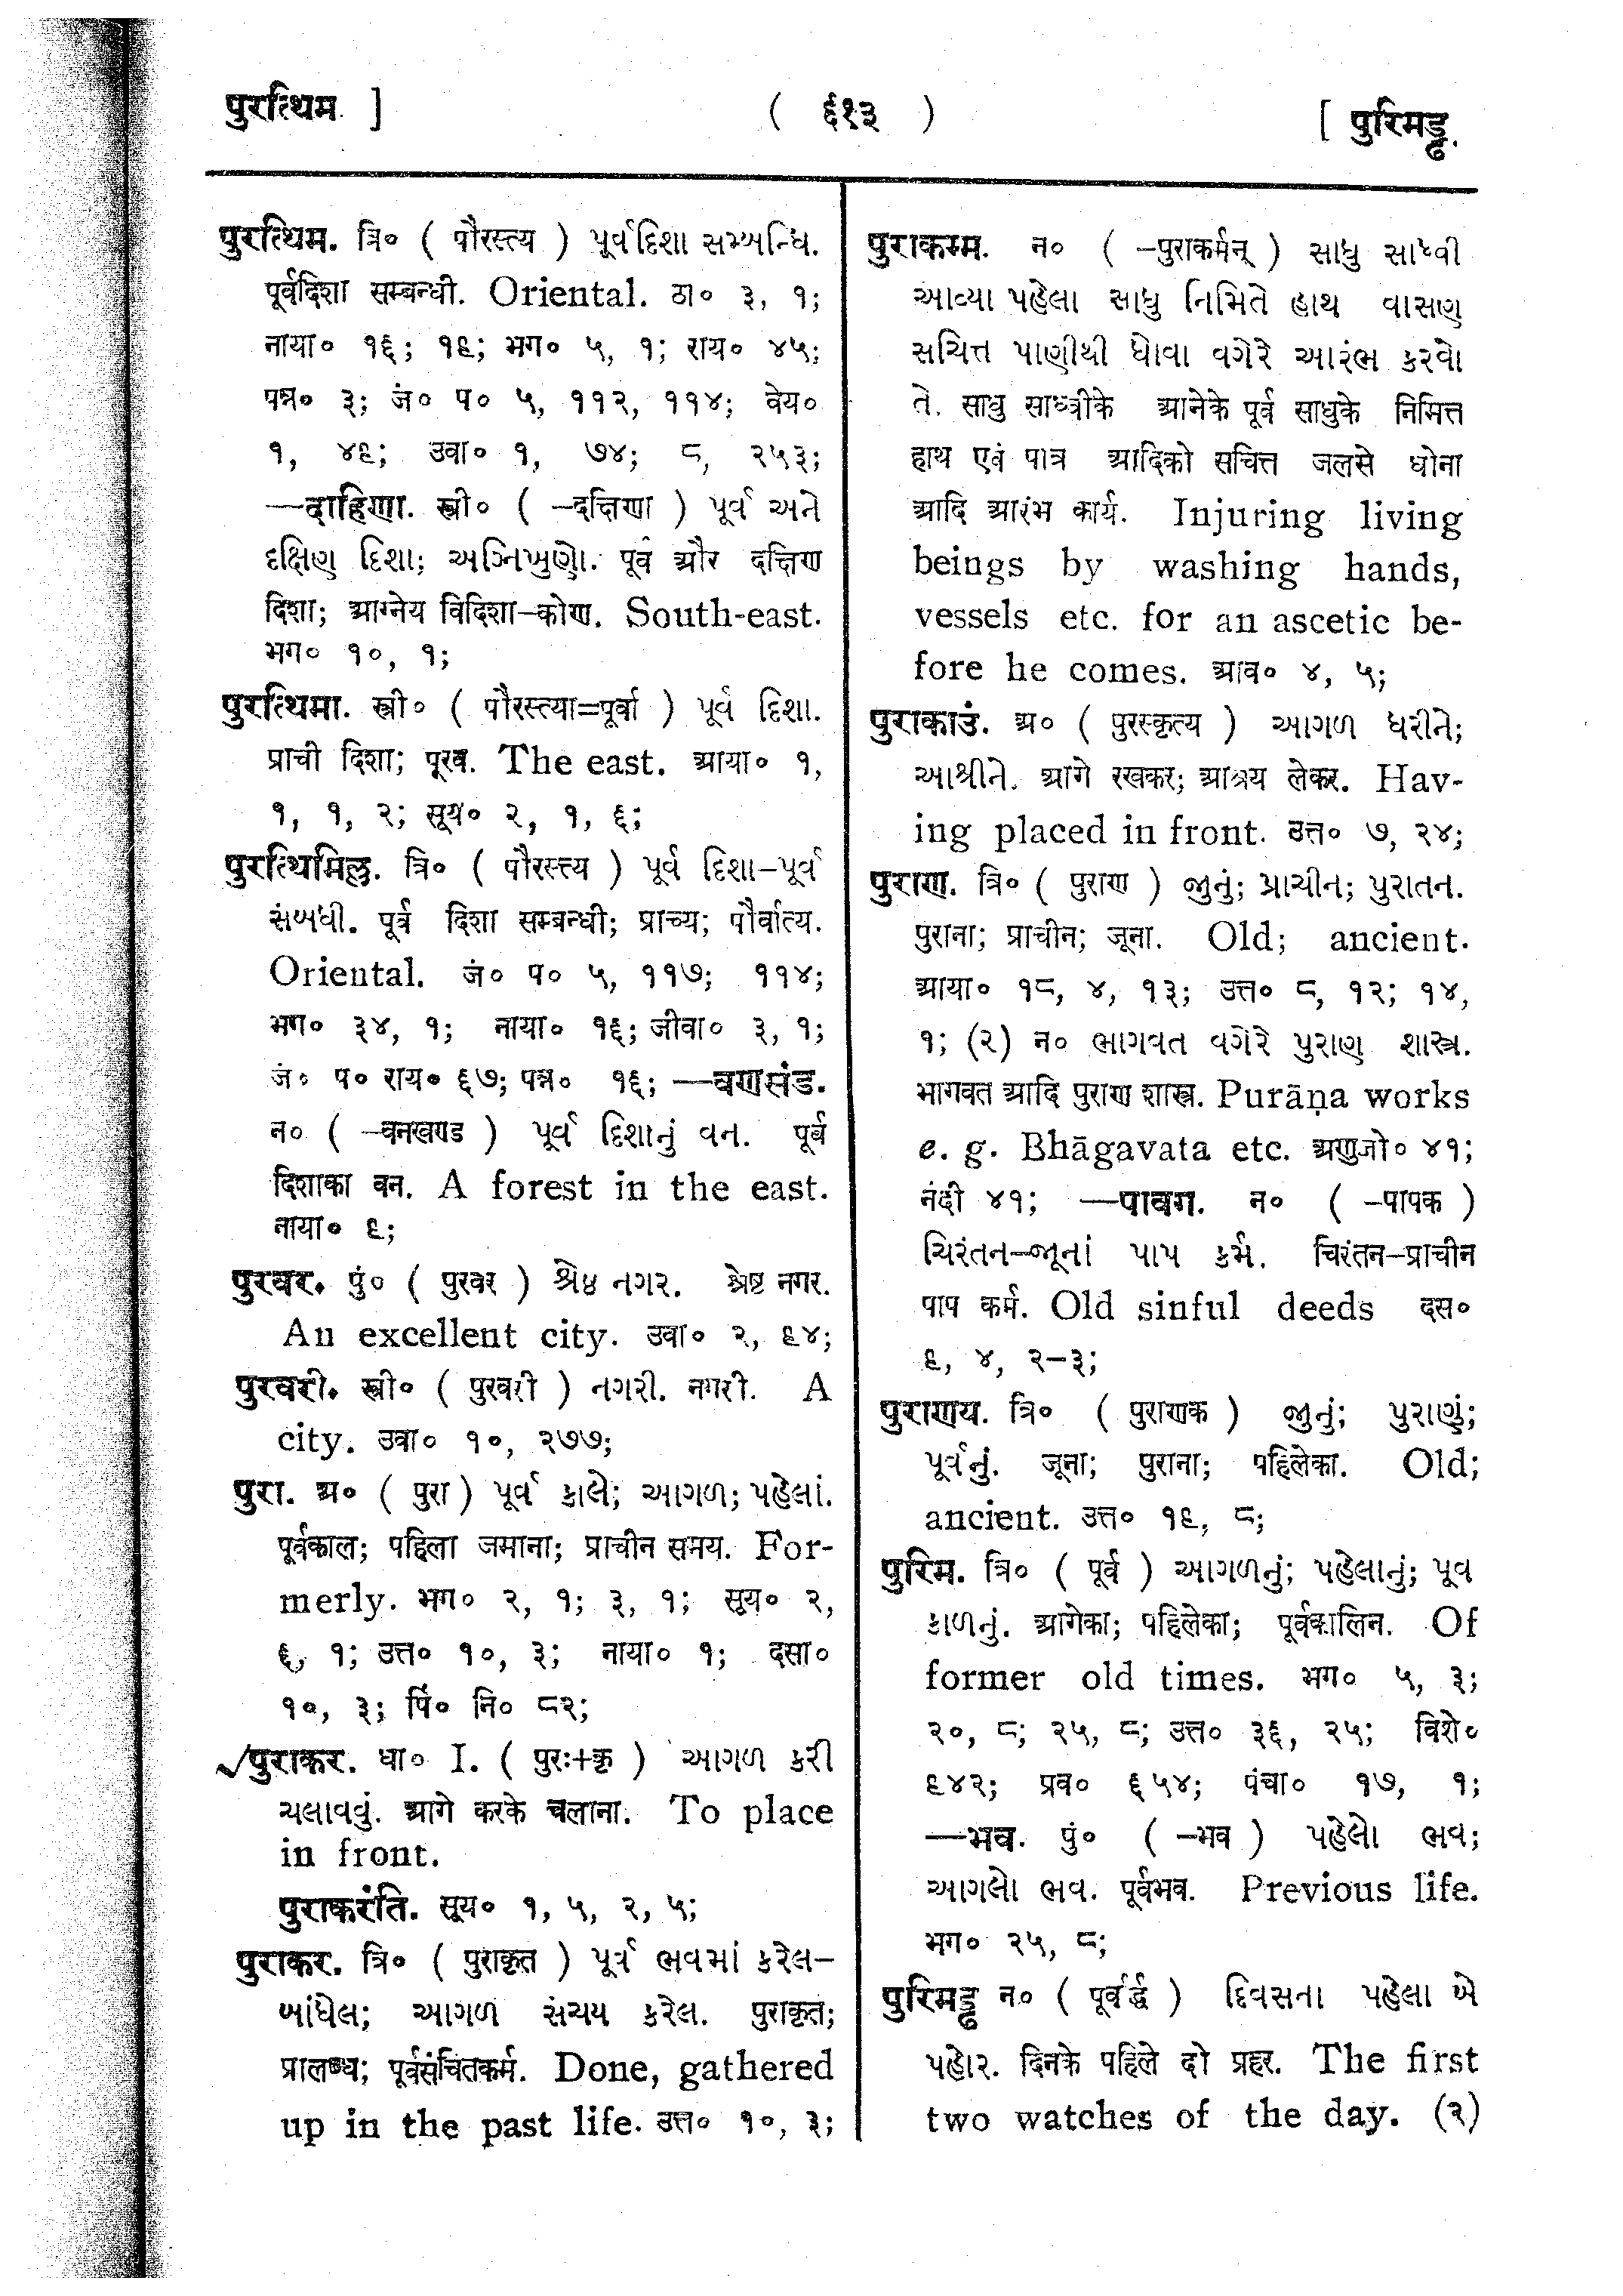 पुरत्थिम ]
( ६१३ )
[ पुरिमड्ढ
पुरत्थिम. त्रि० ( पौरस्त्य ) પૂર્વદિશા સમ્બન્ધિ.
पूर्वदिशा सम्बन्धी. Oriental. ठा० ३, १;
नाया० १६; १६; भग० ५, १; राय० ४५;
पन्न० ३; जं० प० ५, ११२, ११४; वेय०
१, ४६; उवा० १, ७४; ८, २५३;
—दाहिणा. स्त्री० ( –दक्षिणा ) પૂર્વ અને
દક્ષિણ દિશા; અગ્નિખુણો. पूर्व और दक्षिण
दिशा; आग्नेय विदिशा–कोण. South-east.
भग० १०, १;
पुरत्थिमा. स्त्री० ( पौरस्त्या=पूर्वा ) પૂર્વ દિશા.
प्राची दिशा; पूरब. The east. आया० १,
१, १, २; सूय० २, १, ६;
पुरत्थिमिल्ल. त्रि० ( पौरस्त्य ) પૂર્વ દિશા–પૂર્વ
સંબધી. पूर्व दिशा सम्बन्धी; प्राच्य; पौर्वात्य.
Oriental. जं० प० ५, ११७; ११४;
भग० ३४, १; नाया० १६; जीवा० ३, १;
जं० प० राय० ६७; पन्न० १६; —वणसंड.
न० ( –वनखण्ड ) પૂર્વ દિશાનું વન. पूर्व
दिशाका वन. A forest in the east.
नाया० ६;
पुरवर. पुं० ( पुरवर ) શ્રેષ્ઠ નગર. श्रेष्ट नगर.
An excellent city. उवा० २, ६४;
पुरवरी. स्त्री० ( पुरवरी ) નગરી. नगरी. A
city. उवा० १०, २७७;
पुरा. अ० ( पुरा ) પૂર્વ કાલે; આગળ; પહેલાં.
पूर्वकाल; पहिला जमाना; प्राचीन समय. For-
merly. भग० २, १; ३, १; सूय० २,
६, १; उत्त० १०, ३; नाया० १; दसा०
१०, ३; पिं० नि० ८२;
√पुराकर. धा० I. ( पुरः+कृ ) આગળ કરી
ચલાવવું. आगे करके चलाना. To place
in front.
पुराकरंति. सूय० १, ५, २, ५;
पुराकर. त्रि० ( पुराकृत ) પૂર્વ ભવમાં કરેલ–
બાંધેલ; આગળ સંચય કરેલ. पुराकृत;
प्रालब्ध; पूर्वसंचितकर्म. Done, gathered
up in the past life. उत्त० १०, ३;
पुराकम्म. न० ( –पुराकर्मन् ) સાધુ સાધ્વી
આવ્યા પહેલા સાધુ નિમિતે હાથ વાસણ
સચિત્ત પાણીથી ધોવા વગેરે આરંભ કરવો
તે. साधु साध्वीके आनेके पूर्व साधुके निमित्त
हाथ एवं पात्र आदिको सचित्त जलसे धोना
आदि आरंभ कार्य. Injuring living
beings by washing hands,
vessels etc. for an ascetic be-
fore he comes. आव० ४, ५;
पुराकाउं. अ० ( पुरस्कृत्य ) આગળ ધરીને;
આશ્રીને. आगे रखकर; आश्रय लेकर. Hav-
ing placed in front. उत्त० ७, २४;
पुराण. त्रि० ( पुराण ) જુનું; પ્રાચીન; પુરાતન.
पुराना; प्राचीन; जूना. Old; ancient.
आया० १८, ४, १३; उत्त० ८, १२; १४,
१; (२) न० ભાગવત વગેરે પુરાણ શાસ્ત્ર.
भागवत आदि पुराण शास्त्र. Purāṇa works
e. g. Bhāgavata etc. अणुजो० ४१;
नंदी ४१; —पावग. न० ( –पापक )
ચિરંતન–જૂનાં પાપ કર્મ. चिरंतन–प्राचीन
पाप कर्म. Old sinful deeds दस०
६, ४, २–३;
पुराणय. त्रि० ( पुराणक ) જુનું; પુરાણું;
પૂર્વનું. जूना; पुराना; पहिलेका. Old;
ancient. उत्त० १६, ८;
पुरिम. त्रि० ( पूर्व ) આગળનું; પહેલાનું; પૂવ
કાળનું. आगेका; पहिलेका; पूर्वकालिन. Of
former old times. भग० ५, ३;
२०, ८; २५, ८; उत्त० ३६, २५; विशे०
६४२; प्रव० ६५४; पंचा० १७, १;
—भव. पुं० ( –भव ) પહેલો ભવ;
આગલો ભવ. पूर्वभव. Previous life.
भग० २५, ८;
पुरिमड्ढ न० ( पूर्वर्द्ध ) દિવસના પહેલા બે
પહોર. दिनके पहिले दो प्रहर. The first
two watches of the day. (२)